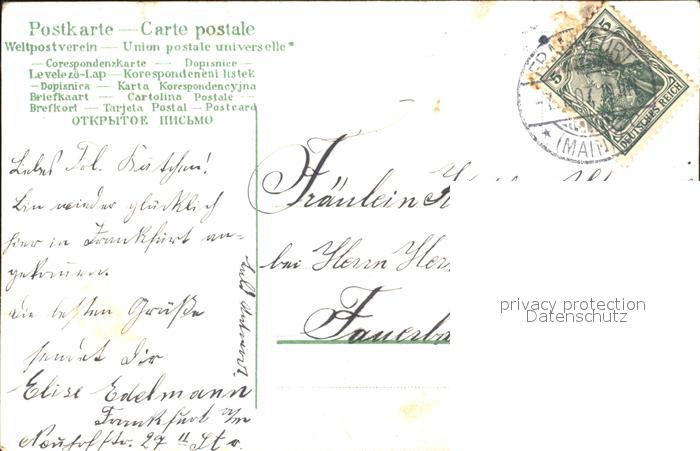 Postkarte — Carte postale
Weltpostverein — Union postale universelle
— Corespondenzkarte — Dopisnice —
Levelező-Lap — Korespondencni listek
— Dopisnica — Karta Korespondencyjna
Briefkaart — Cartolina Postale —
Brefkort — Tarjeta Postal — Postcard
ОТКРЫТОЕ ПИСЬМО
5
5
DEUTSCHES REICH
FRANKFURT
* (MAIN)
Liebes Frl. Kätchen!
Bin wieder glücklich
hier in Frankfurt an-
gekommen.
Die besten Grüße
sendet Dir
Elise Edelmann
Frankfurt a/m
27 II St
Bald Antwort
Fräulein
bei Herrn Her
Fauerba
privacy protection
Datenschutz